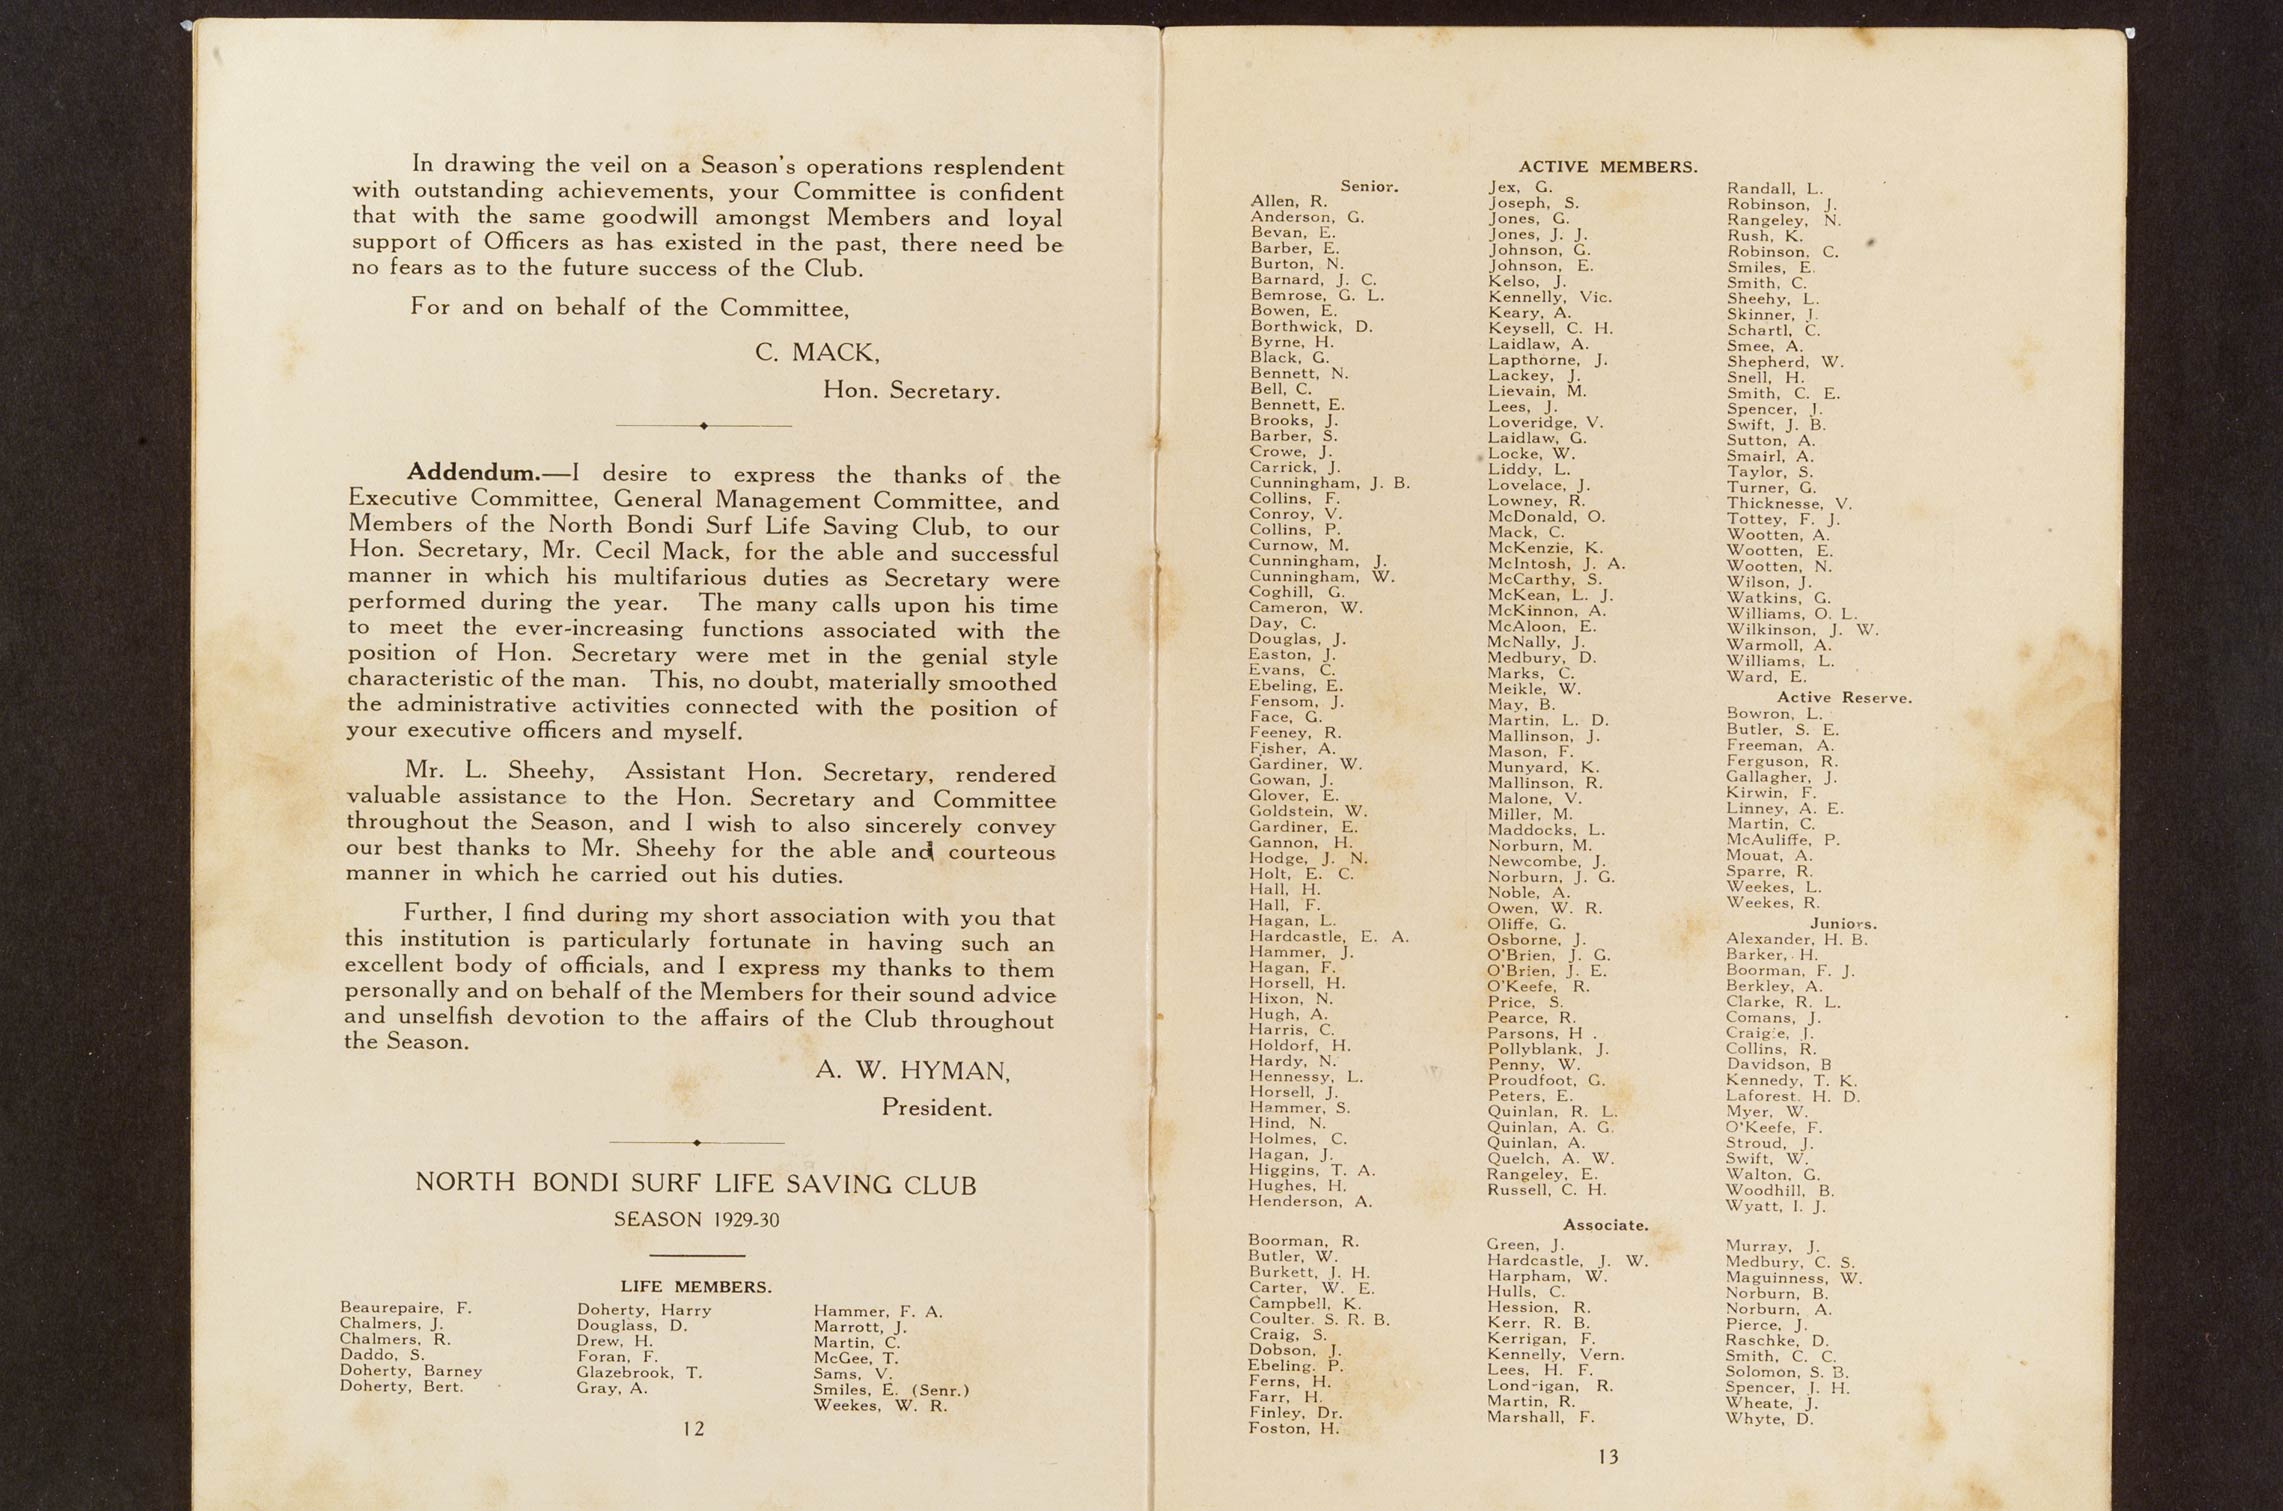 In drawing the veil on a Season's operations resplendent
with outstanding achievements, your Committee is confident
that with the same goodwill amongst Members and loyal
support of Officers as has existed in the past, there need be
no fears as to the future success of the Club.
For and on behalf of the Committee,
C. MACK,
Hon. Secretary.
Addendum.—I desire to express the thanks of the
Executive Committee, General Management Committee, and
Members of the North Bondi Surf Life Saving Club, to our
Hon. Secretary, Mr. Cecil Mack, for the able and successful
manner in which his multifarious duties as Secretary were
performed during the year. The many calls upon his time
to meet the ever-increasing functions associated with the
position of Hon. Secretary were met in the genial style
characteristic of the man. This, no doubt, materially smoothed
the administrative activities connected with the position of
your executive officers and myself.
Mr. L. Sheehy, Assistant Hon. Secretary, rendered
valuable assistance to the Hon. Secretary and Committee
throughout the Season, and I wish to also sincerely convey
our best thanks to Mr. Sheehy for the able and courteous
manner in which he carried out his duties.
Further, I find during my short association with you that
this institution is particularly fortunate in having such an
excellent body of officials, and I express my thanks to them
personally and on behalf of the Members for their sound advice
and unselfish devotion to the affairs of the Club throughout
the Season.
A. W. HYMAN,
President.
NORTH BONDI SURF LIFE SAVING CLUB
SEASON 1929-30
LIFE MEMBERS.
Beaurepaire, F.
Chalmers, J.
Chalmers, R.
Daddo, S.
Doherty, Barney
Doherty, Bert.
Doherty, Harry
Douglass, D.
Drew, H.
Foran, F.
Glazebrook, T.
Gray, A.
Hammer, F. A.
Marrott, J.
Martin, C.
McGee, T.
Sams, V.
Smiles, E. (Senr.)
Weekes, W. R.
12
ACTIVE MEMBERS.
Senior.
Allen, R.
Anderson, G.
Bevan, E.
Barber, E.
Burton, N.
Barnard, J. C.
Bemrose, G. L.
Bowen, E.
Borthwick, D.
Byrne, H.
Black, G.
Bennett, N.
Bell, C.
Bennett, E.
Brooks, J.
Barber, S.
Crowe, J.
Carrick, J.
Cunningham, J. B.
Collins, F.
Conroy, V.
Collins, P.
Curnow, M.
Cunningham, J.
Cunningham, W.
Coghill, G.
Cameron, W.
Day, C.
Douglas, J.
Easton, J.
Evans, C.
Ebeling, E.
Fensom, J.
Face, G.
Feeney, R.
Fisher, A.
Gardiner, W.
Gowan, J.
Glover, E.
Goldstein, W.
Gardiner, E.
Gannon, H.
Hodge, J. N.
Holt, E. C.
Hall, H.
Hall, F.
Hagan, L.
Hardcastle, E. A.
Hammer, J.
Hagan, F.
Horsell, H.
Hixon, N.
Hugh, A.
Harris, C.
Holdorf, H.
Hardy, N.
Hennessy, L.
Horsell, J.
Hammer, S.
Hind, N.
Holmes, C.
Hagan, J.
Higgins, T. A.
Hughes, H.
Henderson, A.
Jex, G.
Joseph, S.
Jones, G.
Jones, J. J.
Johnson, G.
Johnson, E.
Kelso, J.
Kennelly, Vic.
Keary, A.
Keysell, C. H.
Laidlaw, A.
Lapthorne, J.
Lackey, J.
Lievain, M.
Lees, J.
Loveridge, V.
Laidlaw, G.
Locke, W.
Liddy, L.
Lovelace, J.
Lowney, R.
McDonald, O.
Mack, C.
McKenzie, K.
McIntosh, J. A.
McCarthy, S.
McKean, L. J.
McKinnon, A.
McAloon, E.
McNally, J.
Medbury, D.
Marks, C.
Meikle, W.
May, B.
Martin, L. D.
Mallinson, J.
Mason, F.
Munyard, K.
Mallinson, R.
Malone, V.
Miller, M.
Maddocks, L.
Norburn, M.
Newcombe, J.
Norburn, J. G.
Noble, A.
Owen, W. R.
Oliffe, G.
Osborne, J.
O'Brien, J. G.
O'Brien, J. E.
O'Keefe, R.
Price, S.
Pearce, R.
Parsons, H .
Pollyblank, J.
Penny, W.
Proudfoot, G.
Peters, E.
Quinlan, R. L.
Quinlan, A. G.
Quinlan, A.
Quelch, A. W.
Rangeley, E.
Russell, C. H.
Randall, L.
Robinson, J.
Rangeley, N.
Rush, K.
Robinson, C.
Smiles, E.
Smith, C.
Sheehy, L.
Skinner, J.
Schartl, C.
Smee, A.
Shepherd, W.
Snell, H.
Smith, C. E.
Spencer, J.
Swift, J. B.
Sutton, A.
Smairl, A.
Taylor, S.
Turner, G.
Thicknesse, V.
Tottey, F. J.
Wootten, A.
Wootten, E.
Wootten, N.
Wilson, J.
Watkins, G.
Williams, O. L.
Wilkinson, J. W.
Warmoll, A.
Williams, L.
Ward, E.
Active Reserve.
Bowron, L.
Butler, S. E.
Freeman, A.
Ferguson, R.
Gallagher, J.
Kirwin, F.
Linney, A. E.
Martin, C.
McAuliffe, P.
Mouat, A.
Sparre, R.
Weekes, L.
Weekes, R.
Juniors.
Alexander, H. B.
Barker, H.
Boorman, F. J.
Berkley, A.
Clarke, R. L.
Comans, J.
Craigie, J.
Collins, R.
Davidson, B
Kennedy, T. K.
Laforest. H. D.
Myer, W.
O'Keefe, F.
Stroud, J.
Swift, W.
Walton, G.
Woodhill, B.
Wyatt, I. J.
Associate.
Boorman, R.
Butler, W.
Burkett, J. H.
Carter, W. E.
Campbell, K.
Coulter. S. R. B.
Craig, S.
Dobson, J.
Ebeling. P.
Ferns, H.
Farr, H.
Finley, Dr.
Foston, H.
Green, J.
Hardcastle, J. W.
Harpham, W.
Hulls, C.
Hession, R.
Kerr, R. B.
Kerrigan, F.
Kennelly, Vern.
Lees, H. F.
Lond-igan, R.
Martin, R.
Marshall, F.
Murray, J.
Medbury, C. S.
Maguinness, W.
Norburn, B.
Norburn, A.
Pierce, J.
Raschke, D.
Smith, C. C.
Solomon, S. B.
Spencer, J. H.
Wheate, J.
Whyte, D.
13